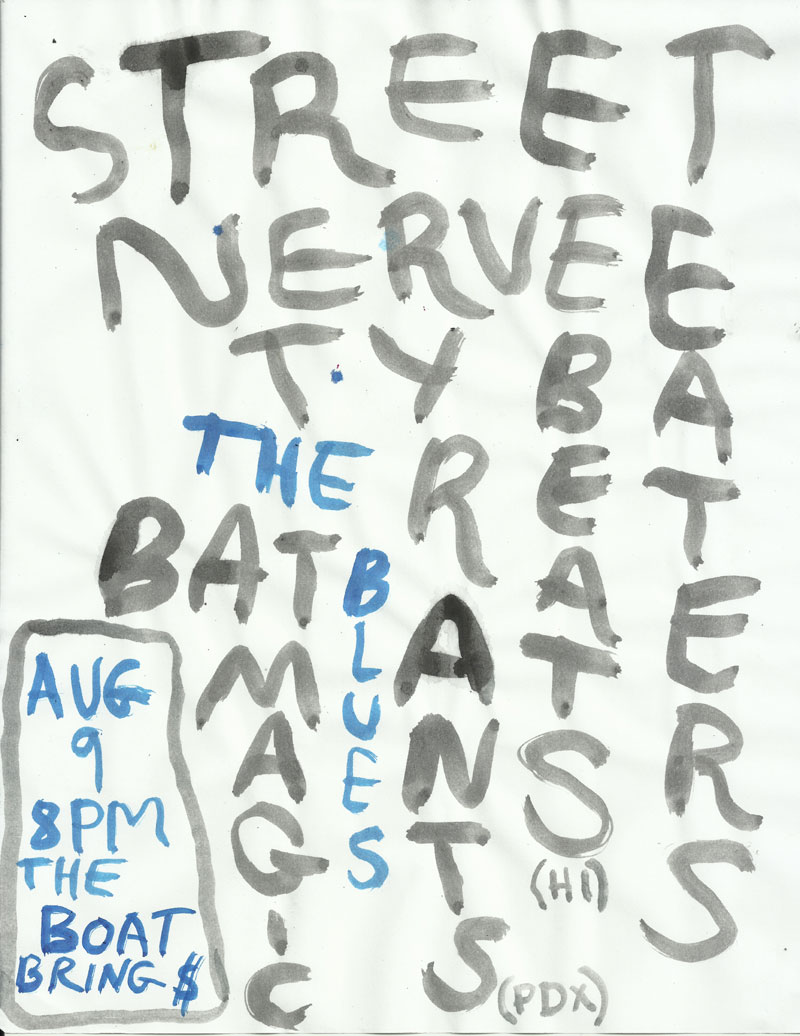 STREET
EATERS
NERVE
BEATS
(HI)
TYRANTS
(PDX)
THE
BLUES
BAT
MAGIC
AUG
9
8PM
THE
BOAT
BRING $